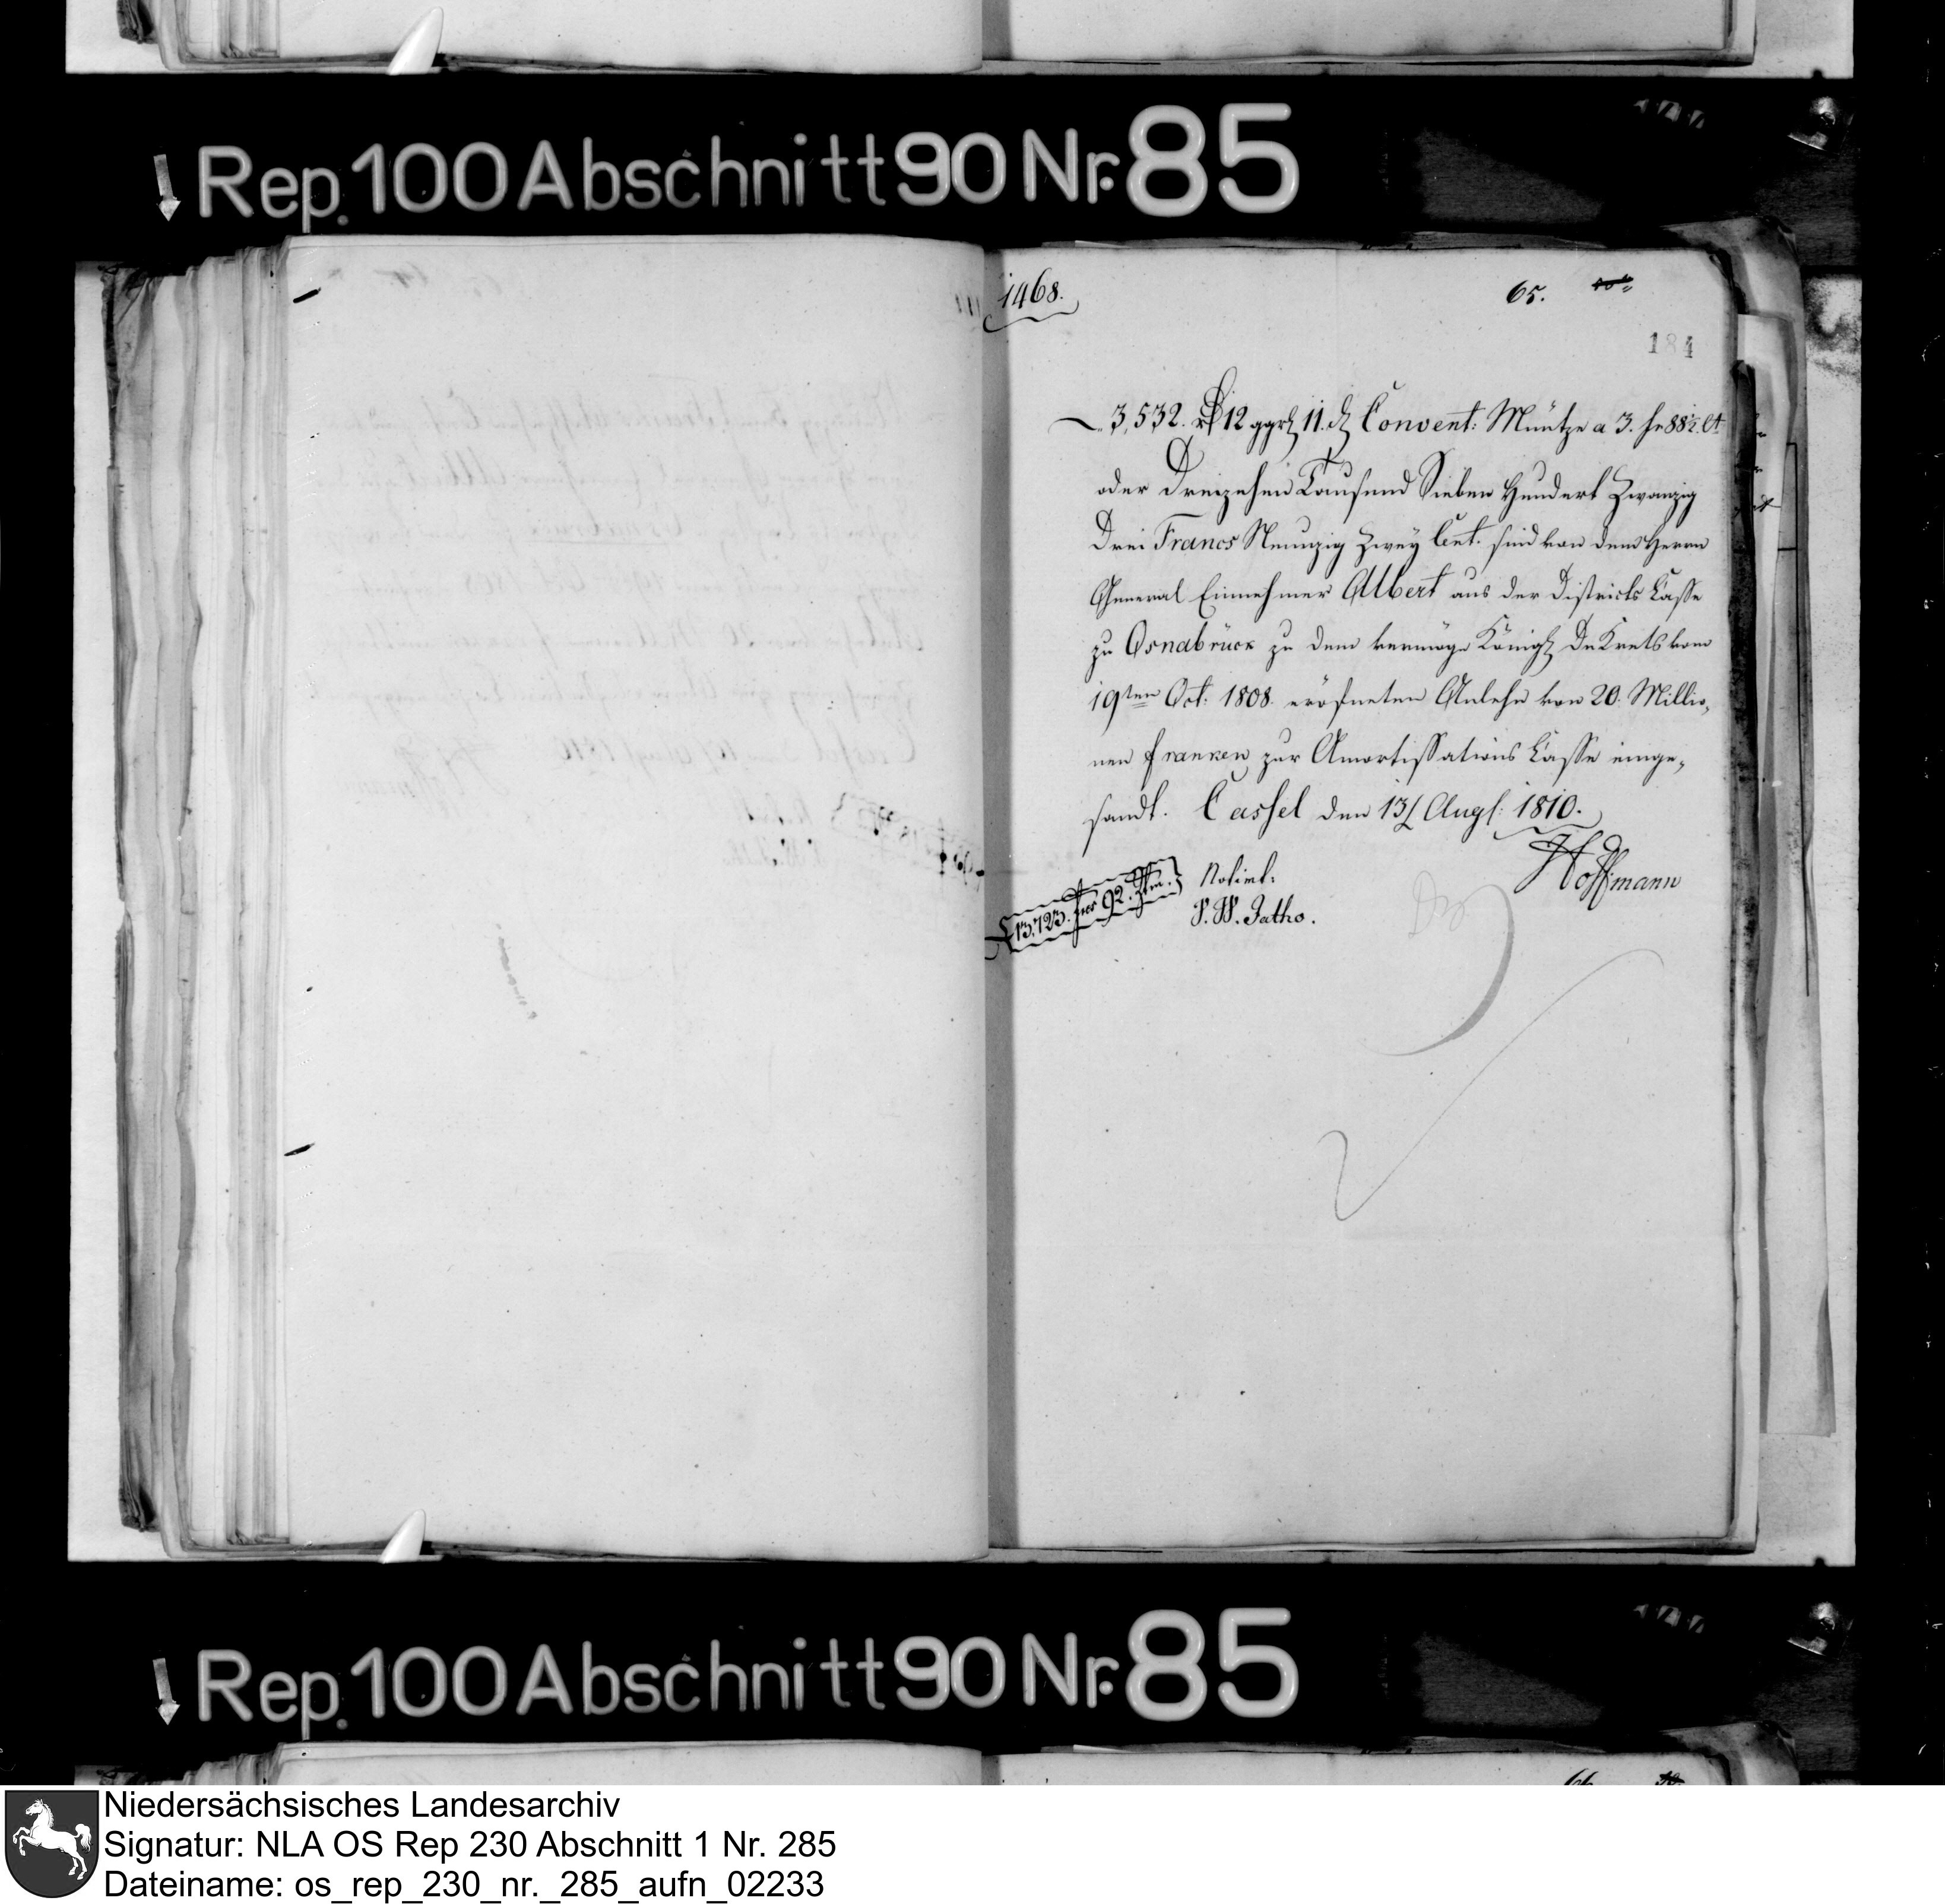 Rep. 100 Abschnitt 90 Nr. 85
1468.
65.
184
3,532. rℓ 12 ggrl 11. ₰ Convent: Müntze a 3. fr 88½ Ct
oder Dreizehen Tausend Sieben Hundert Zwanzig
Drei Francs Neunzig Zwey Cent. sind von dem Herrn
General Einnehmer Albert aus der Districts Casse
zu Osnabrück zu dem vermöge Königl Dekrets vom
19ten Oct: 1808. eröfneten Anlehn von 20. Millio-
nen franken zur Amortissations Casse einge-
sandt. Cassel den 13t Augs: 1810.
Hoffmann
13,723. frcs 92. Ctm.
Notirt.
P. W. Jatho.
Rep. 100 Abschnitt 90 Nr. 85
66
Niedersächsisches Landesarchiv
Signatur: NLA OS Rep 230 Abschnitt 1 Nr. 285
Dateiname: os_rep_230_nr._285_aufn_02233